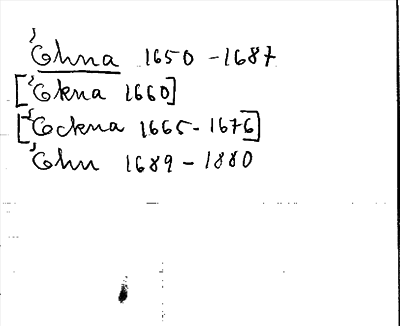 Tohna 1650 - 1687
[Tokna 1660]
[Tockna 1665 - 1676]
Tohn 1689 - 1880